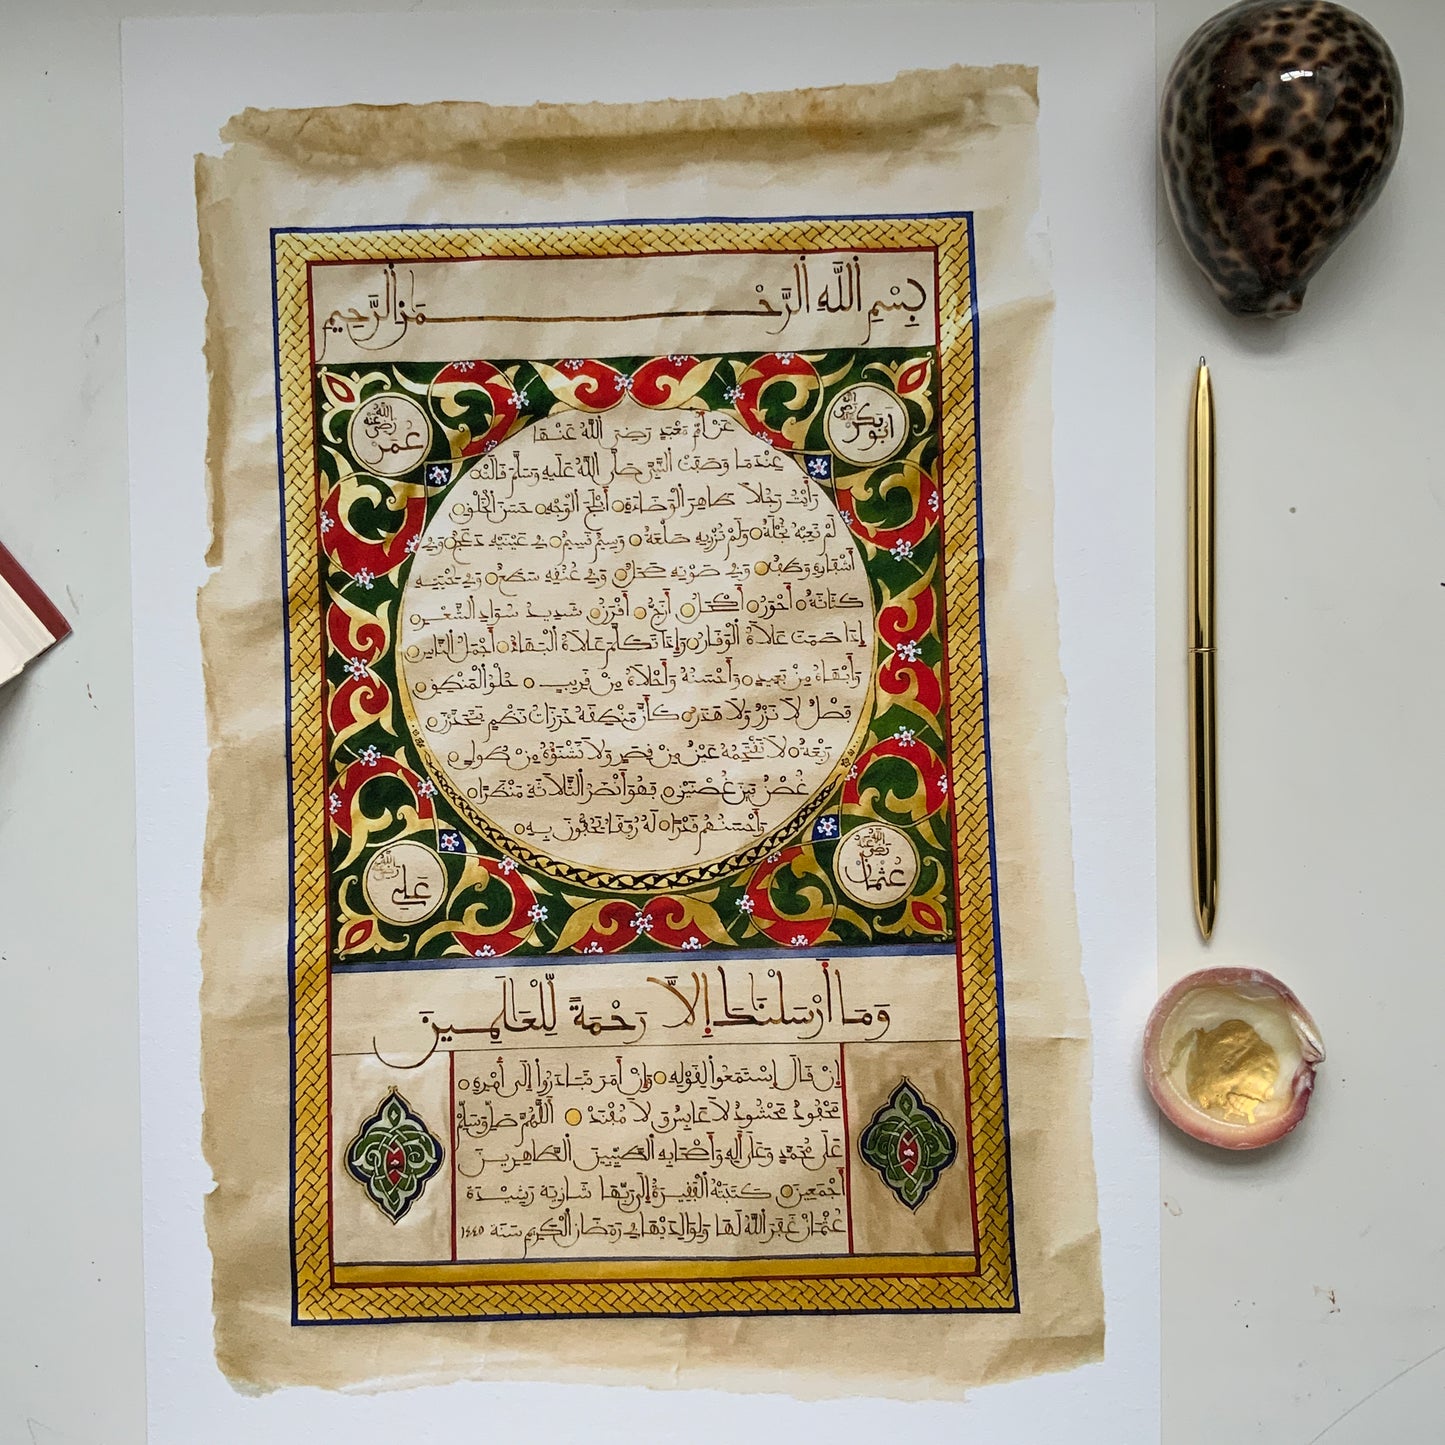 بِسْمِ اللَّهِ الرَّحْمَنِ الرَّحِيمِ
أبوبكر رضي الله عنه
عمر رضي الله عنه
عن أم معبد رضي الله عنها
عندما وصفت النبي صلى الله عليه وسلم قالت
رأيت رجلا ظاهر الوضاءة أبلج الوجه حسن الخلق
لم تعبه نحلة ولم تزريه صلعة وسيم قسيم في عينيه دعج وفي
أشفاره وطف وفي صوته صحل وفي عنقه سطع وفي لحيته
كثاثة أحور أكحل أزج أقرن شديد سواد الشعر
إذا صمت علاه الوقار وإذا تكلم علاه البهاء أجمل الناس
وأبهاه من بعيد وأحسنه وأحلاه من قريب حلو المنطق
فصل لا نزر ولا هذر كأن منطقه خرزات نظم يتحدرن
ربعة لا تقتحمه عين من قصر ولا تشنؤه من طول
غصن بين غصنين فهو أنضر الثلاثة منظرا
وأحسنهم قدرا له رفقاء يحفون به
عثمان رضي الله عنه
علي رضي الله عنه
وَمَا أَرْسَلْنَاكَ إِلَّا رَحْمَةً لِّلْعَالَمِينَ
إن قال استمعوا لقوله وإن أمر تبادروا إلى أمره
محفود محشود لا عابس ولا مفند اللهم صل وسلم
على محمد وعلى آله وأصحابه الطيبين الطاهرين
أجمعين كتبته الفقيرة إلى ربها شارية رشيدة
عثمان غفر الله لها ولوالديها في رمضان الكريم سنة ١٤٤٥